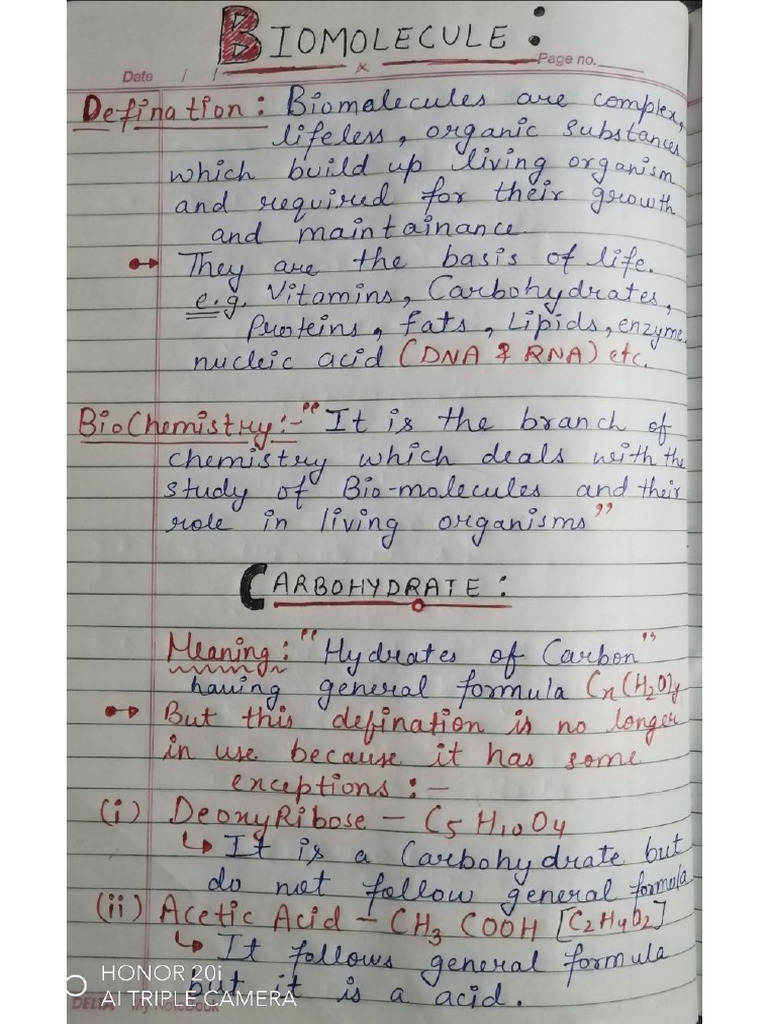 BIOMOLECULE:
Date / / Page no.
Defination: Biomolecules are complex,
lifeless, organic substances
which build up living organism
and required for their growth
and maintainance.
They are the basis of life.
e.g. Vitamins, Carbohydrates,
Proteins, fats, Lipids, enzyme,
nucleic acid (DNA & RNA) etc.
BioChemistry:- "It is the branch of
chemistry which deals with the
study of Bio-molecules and their
role in living organisms"
CARBOHYDRATE:
Meaning: "Hydrates of Carbon"
having general formula Cx(H2O)y
But this defination is no longer
in use because it has some
exceptions:-
(i) DeoxyRibose - C5H10O4
It is a Carbohydrate but
do not follow general formula
(ii) Acetic Acid - CH3 COOH [C2H4O2]
It follows general formula
but it is a acid.
HONOR 20i
AI TRIPLE CAMERA
DELTA My NoteBook